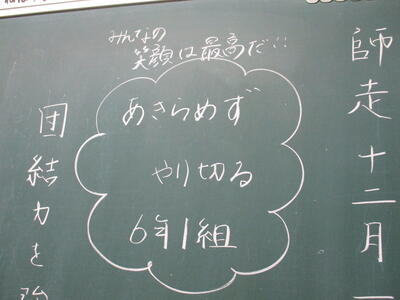 師走 十二月一
みんなの
笑顔は最高だ!!
あきらめず
やり切る
6年1組
団結力を強